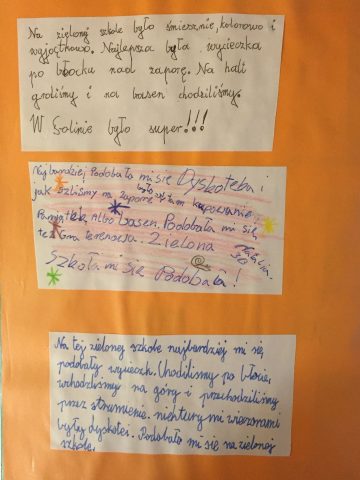 Na zielonej szkole było śmiesznie, kolorowo i
wyjątkowo. Najlepsza była wycieczka
po błocku nad zaporę. Na hali
graliśmy i na basen chodziliśmy.
W Solinie było super!!!
Najbardziej Podobała mi się Dyskoteka i
jak szliśmy na zaporę było też tam kupowanie
Pamiątek Albo basen. Podobała mi się
też Gra terenowa. Zielona
Szkoła mi się Podobała!
Natalia
3b
Na tej zielonej szkole najbardziej mi się
podobały wycieczk. Chodziliśmy po błocie,
wchodziliśmy na góry i przechodziliśmy
przez strumienie. wieczorami
były dyskotei. Podobało mi się na zielonej
szkole.